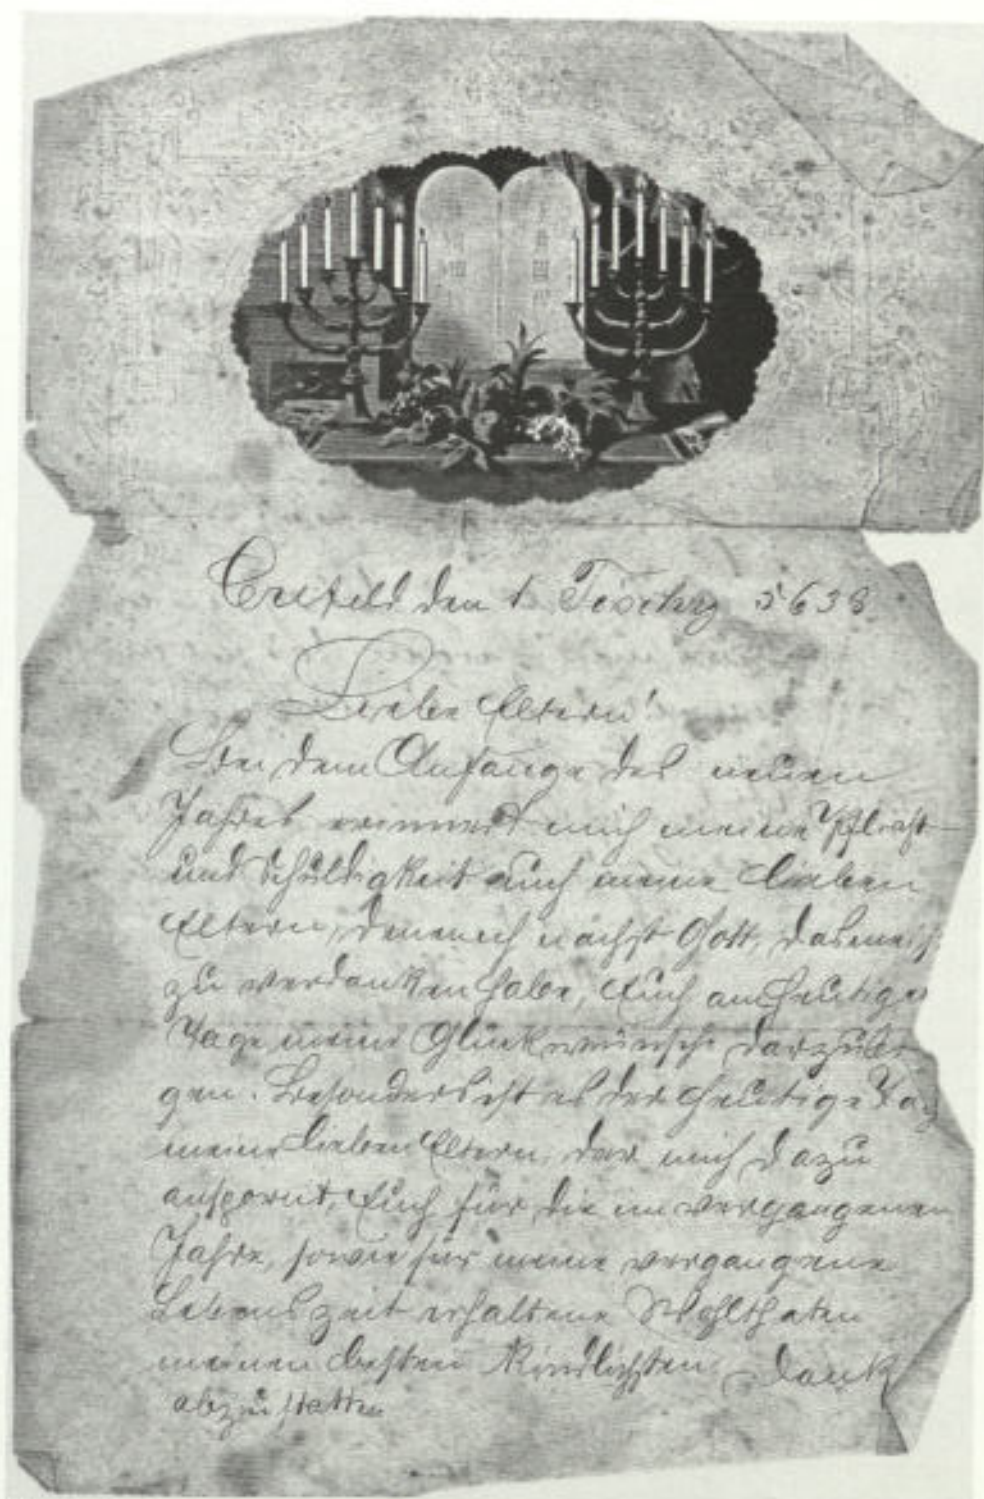 Crefeld den 1. Tischry 5638
Liebe Eltern!
Bei dem Anfange des neuen
Jahres erinnert mich meine Pflicht
und Schuldigkeit auch meine lieben
Eltern, denen ich nächst Gott, das mein
zu verdanken habe, Euch am heutigen
Tage meine Glückwünsche darzubrin
gen. Besonders ist es der heutige Tag
meine lieben Eltern, der mich dazu
anspornt, Euch für die im vergangenen
Jahre, sowie für meine vergangene
Lebenszeit erhaltene Wohlthaten
meinen besten kindlichsten Dank
abzustatten